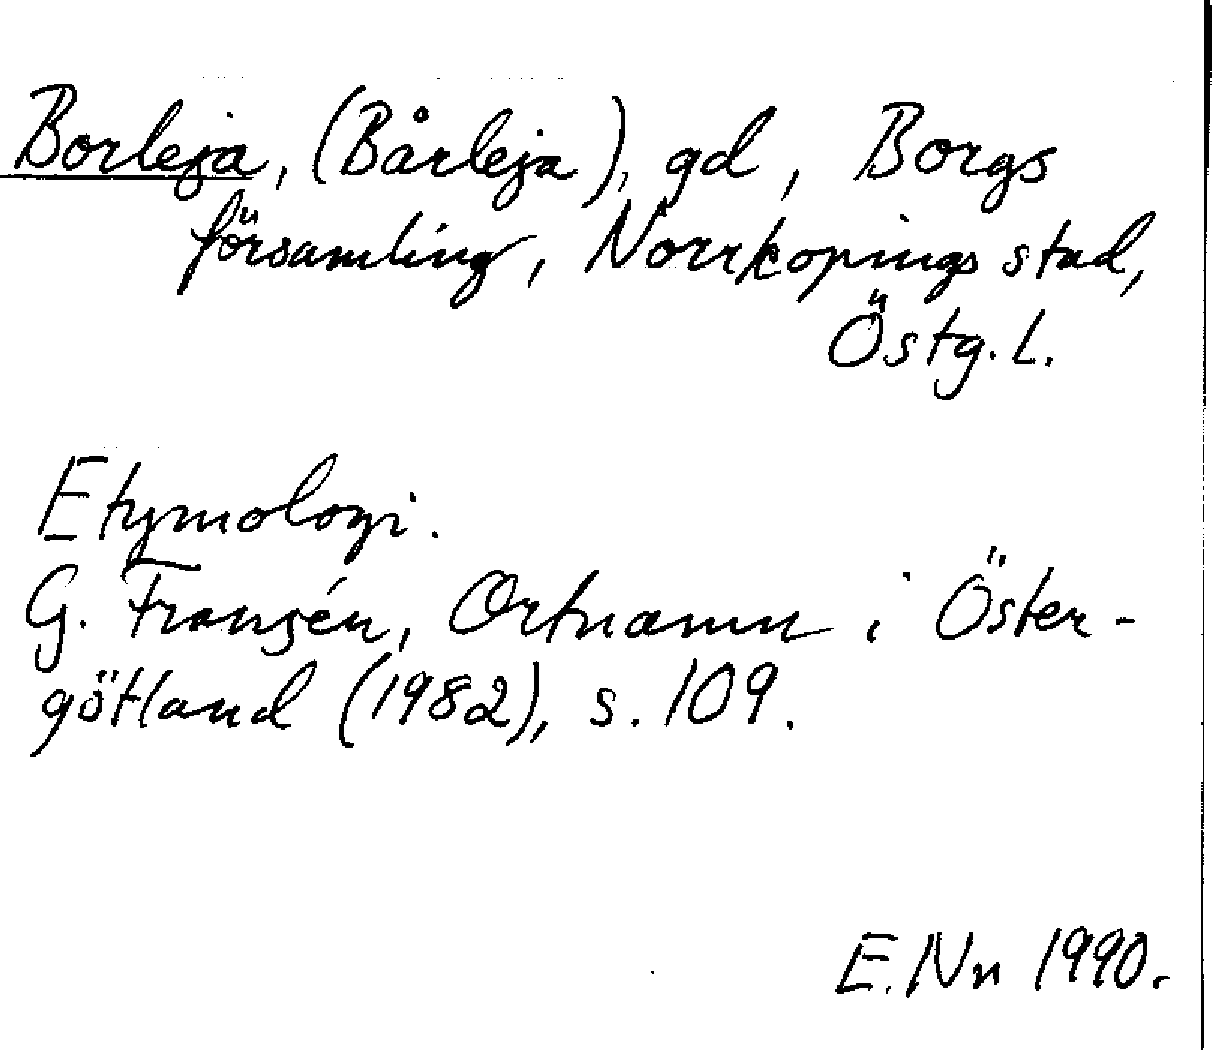 Borleja, (Bårleja), gd, Borgs
församling, Norrkopings stad,
Östg. L.
Etymologi.
G. Franzén, Ortnamn i Öster-
götland (1982), s. 109.
E. Nn 1990.